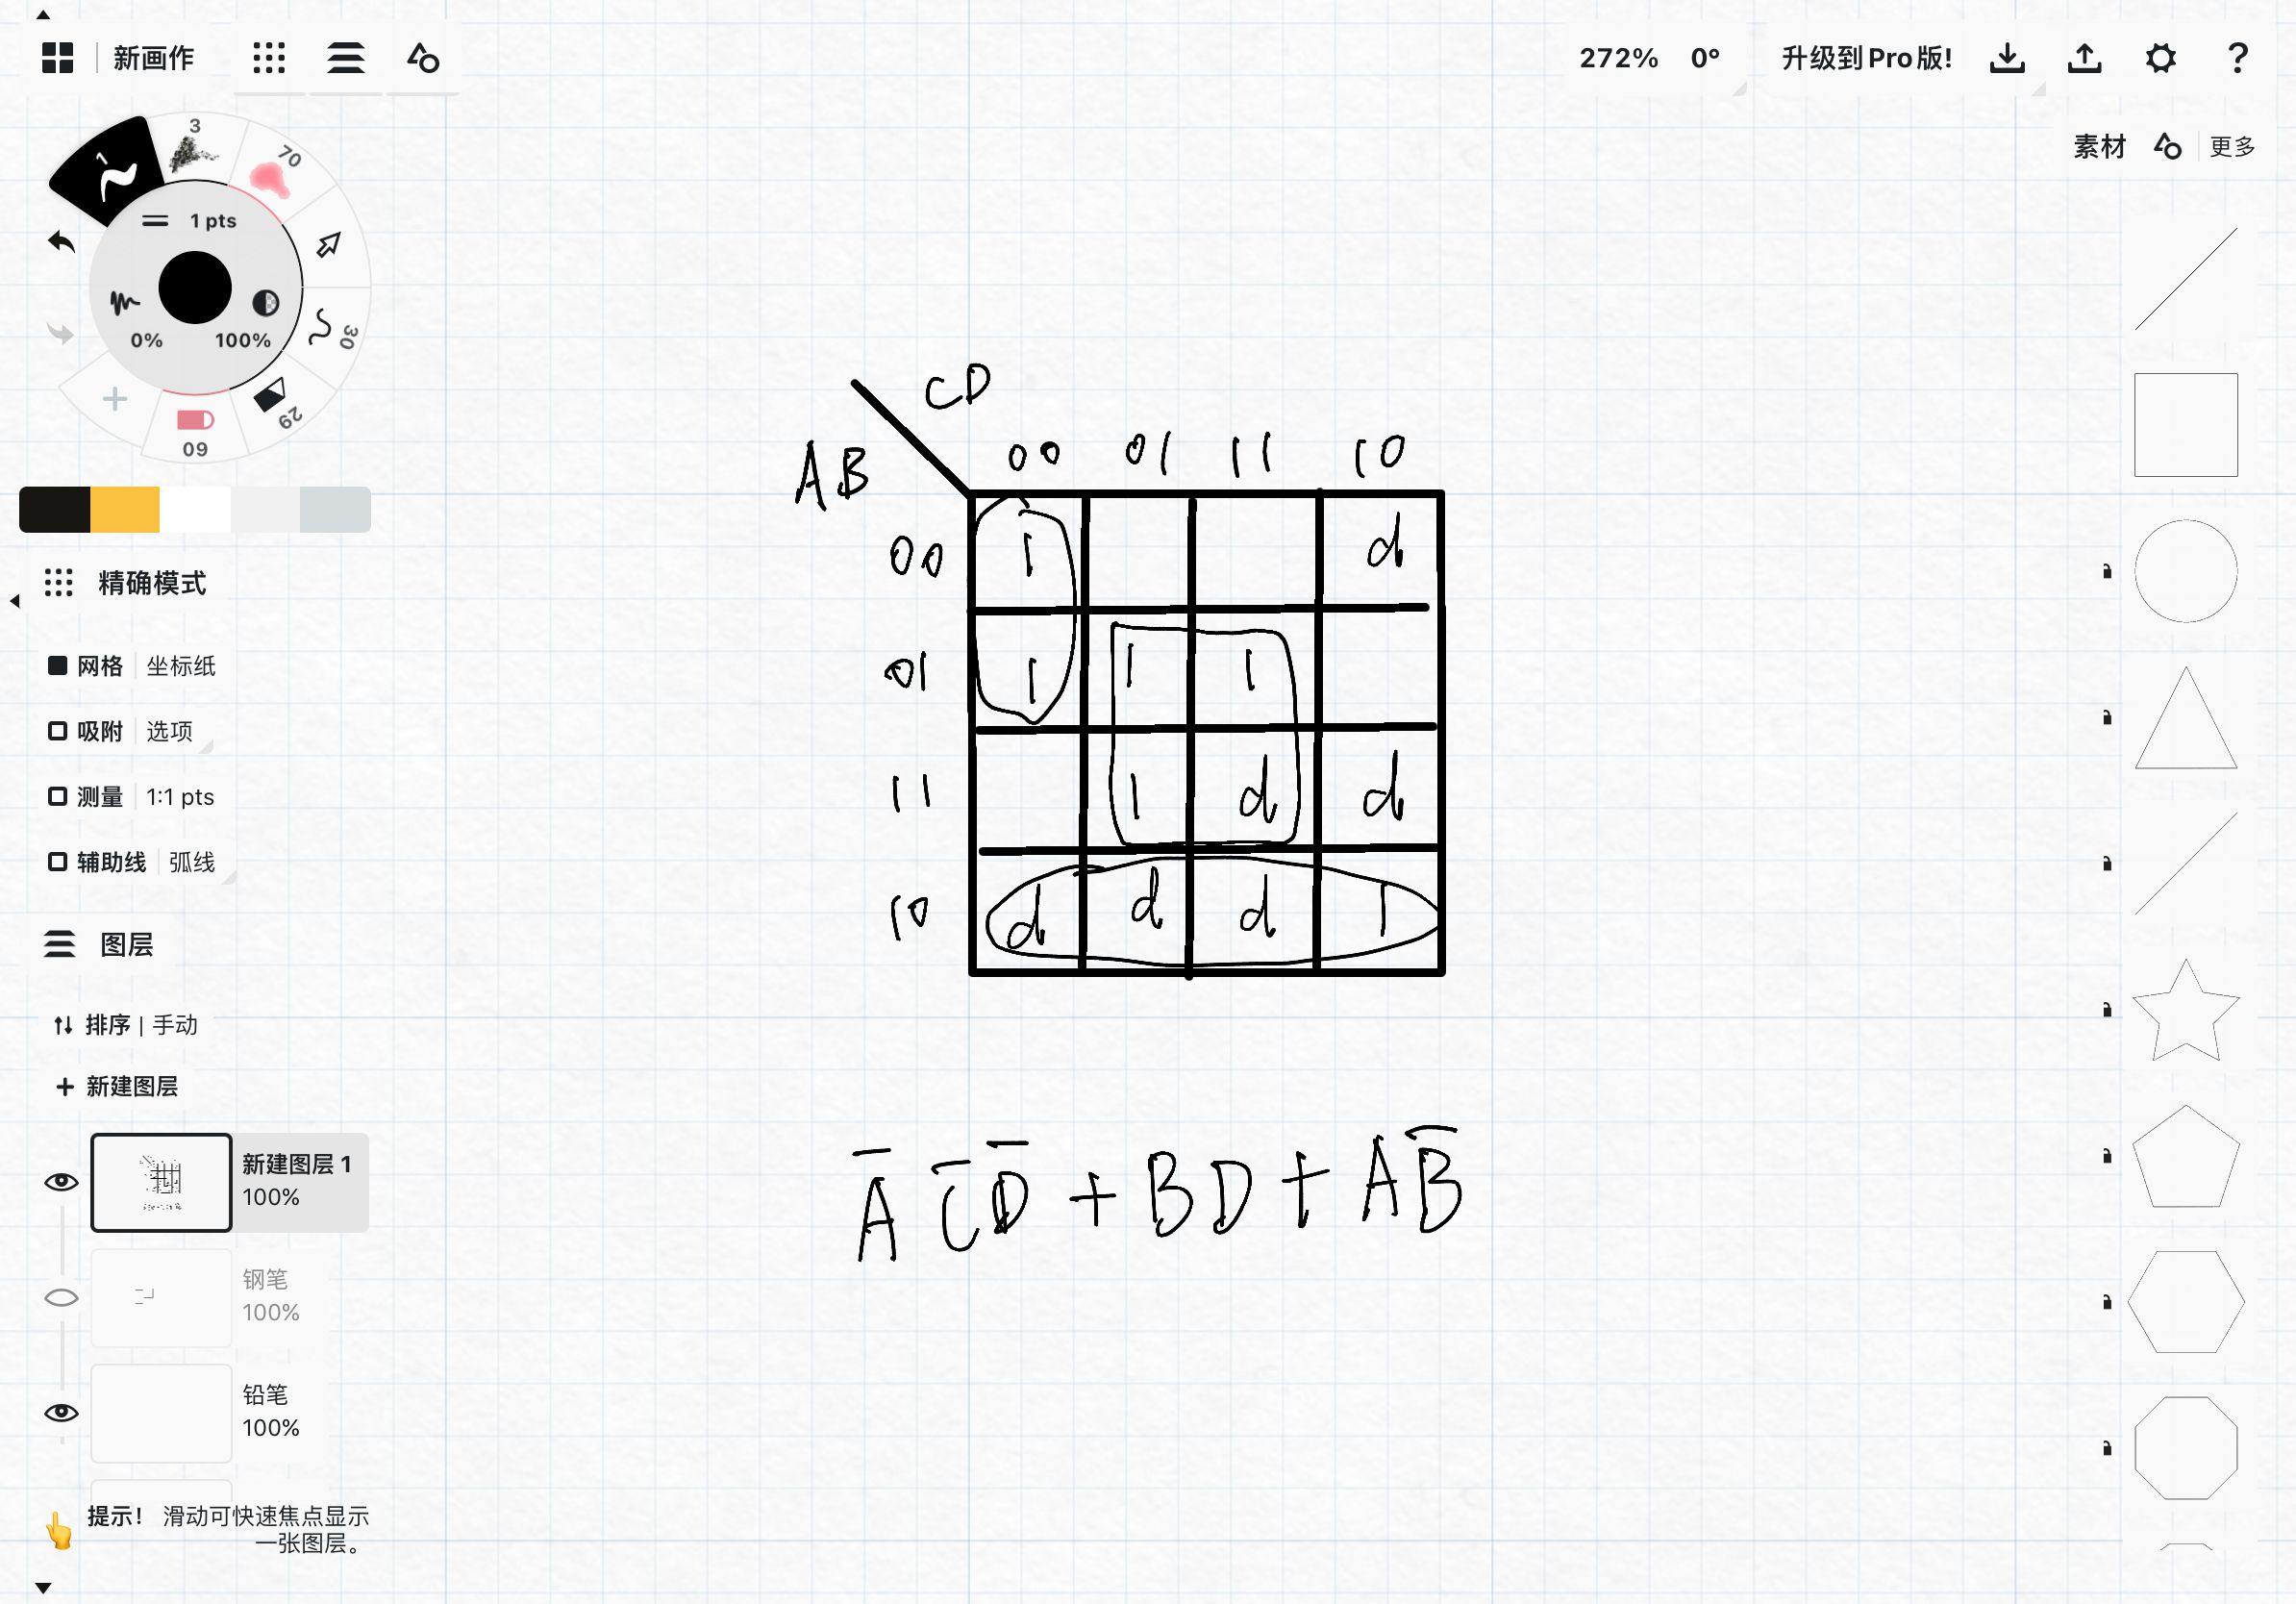 新画作
272% 0° 升级到 Pro 版! ?
素材 更多
3
70
1
1 pts
30
0% 100%
29
60
精确模式
网格 坐标纸
吸附 选项
测量 1:1 pts
辅助线 弧线
图层
排序 | 手动
+ 新建图层
新建图层 1
100%
钢笔
100%
铅笔
100%
提示! 滑动可快速焦点显示
一张图层。
CD
AB
00 01 11 10
00 1 d
01 1 1 1
11 1 d d
10 d d d 1
A̅ C̅ D̅ + BD + AB̅